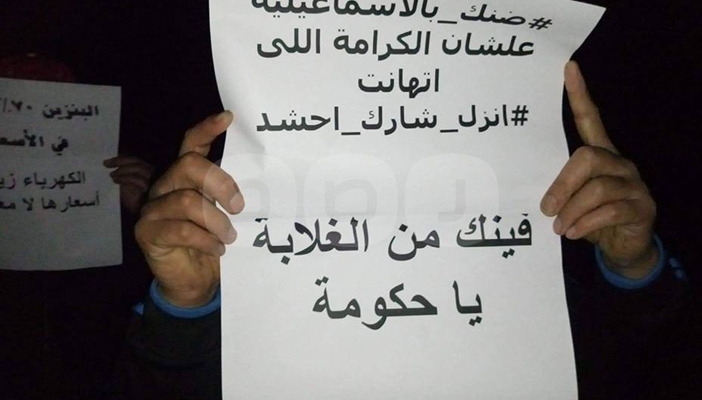 #ضنك_بالاسماعيلية
علشان الكرامة اللى
اتهانت
#انزل_شارك_احشد
فينك من الغلابة
يا حكومة
البنزين ٧٠٪
في الأسع
الكهرباء زي
أسعارها لا مع